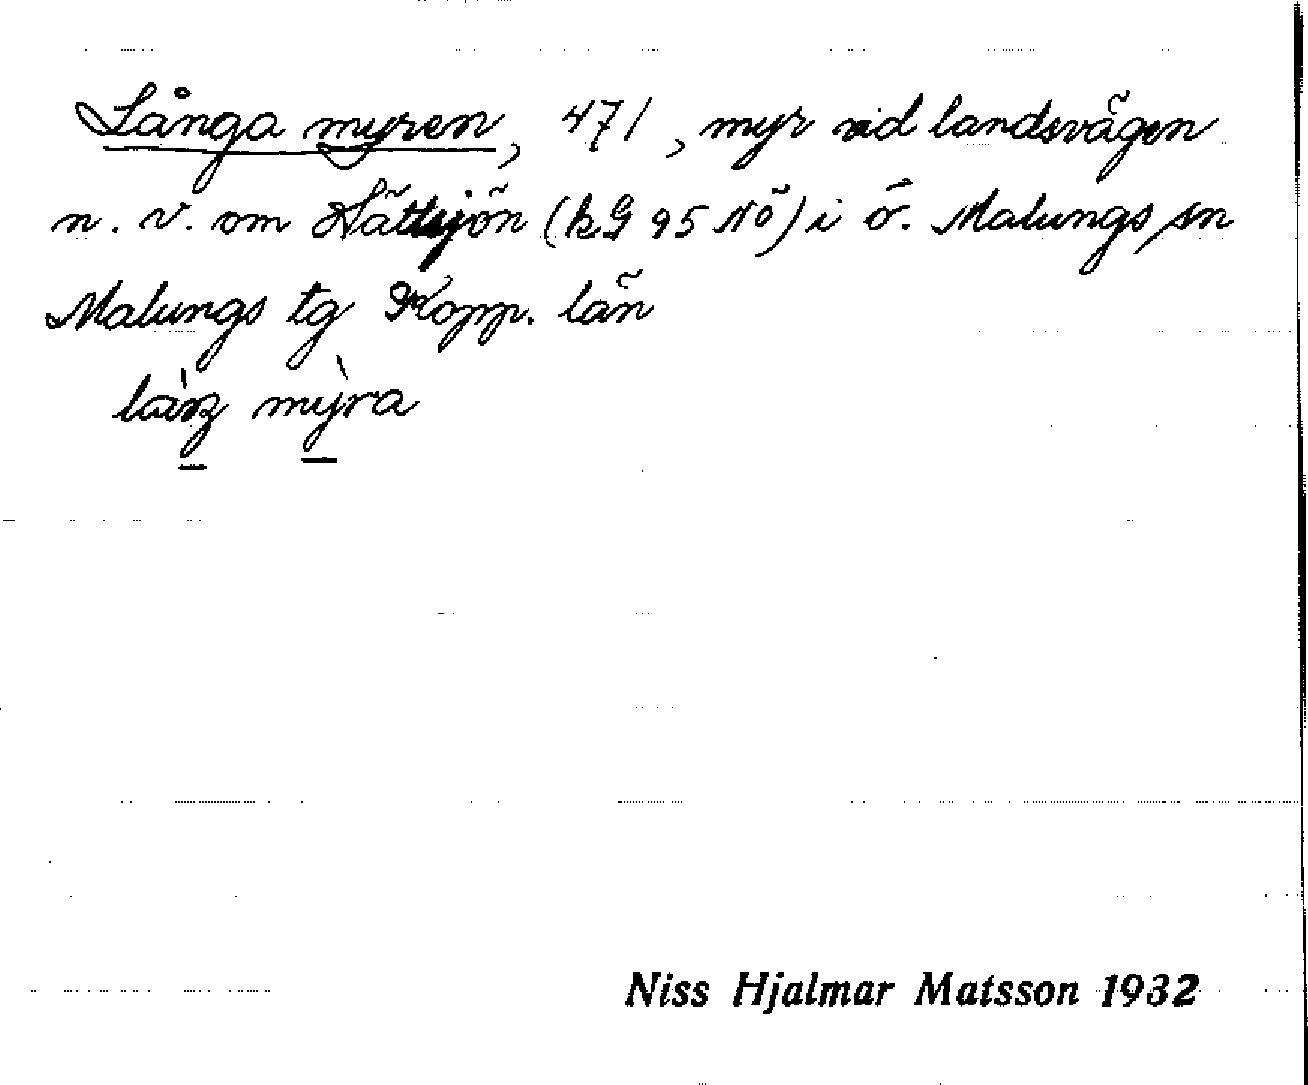 Långa myren, 471, myr vid landsvägen
n. v. om Nättsjön (kG 95 NÖ) i ö. Malungs sn
Malungs tg Kopp. län
mỳra
Niss Hjalmar Matsson 1932